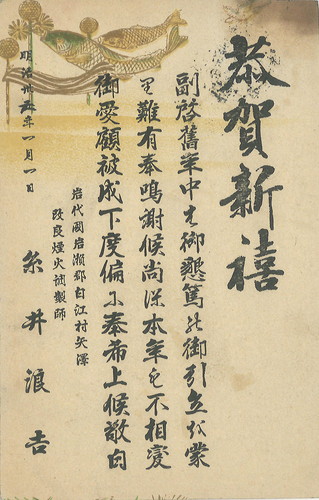 恭賀新禧
副啓舊年中は御懇篤の御引立を蒙
り難有奉鳴謝候尚ほ本年も不相變
御愛顧被成下度偏に奉希上候敬白
岩代國岩瀬郡白江村矢澤
改良煙火試製師
糸井浪吉
明治卅年一月一日